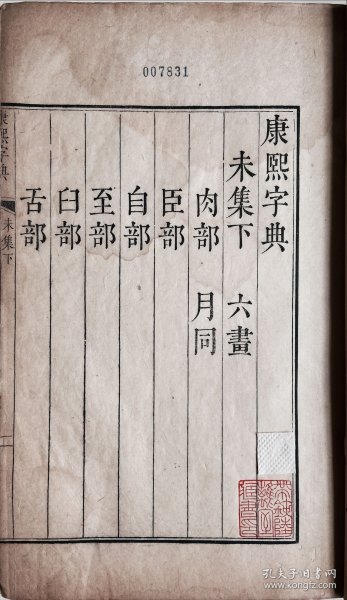 007831
康熙字典
未集下 六畫
肉部 月同
臣部
自部
至部
臼部
舌部
康熙字典
未集下
孔夫子旧书网